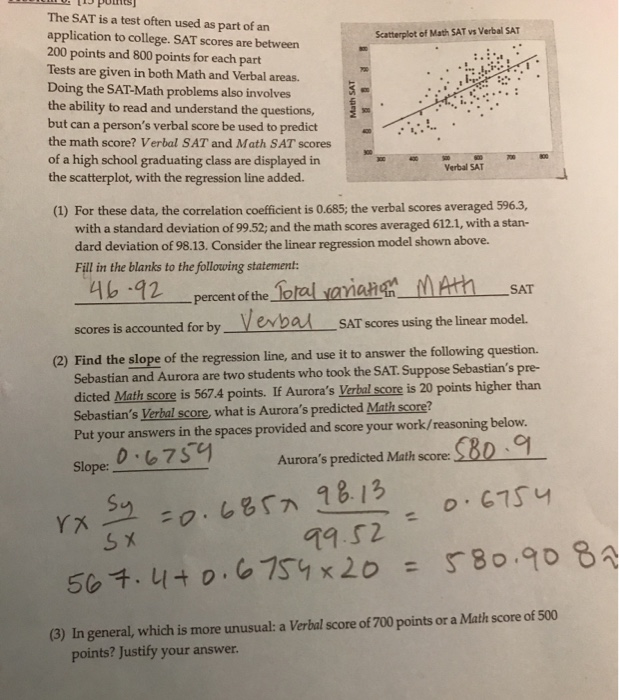 [15 points]
The SAT is a test often used as part of an
application to college. SAT scores are between
200 points and 800 points for each part
Tests are given in both Math and Verbal areas.
Doing the SAT-Math problems also involves
the ability to read and understand the questions,
but can a person's verbal score be used to predict
the math score? Verbal SAT and Math SAT scores
of a high school graduating class are displayed in
the scatterplot, with the regression line added.
Scatterplot of Math SAT vs Verbal SAT
Math SAT
Verbal SAT
(1) For these data, the correlation coefficient is 0.685; the verbal scores averaged 596.3,
with a standard deviation of 99.52; and the math scores averaged 612.1, with a stan-
dard deviation of 98.13. Consider the linear regression model shown above.
Fill in the blanks to the following statement:
46.92 percent of the Total variation in MAth SAT
scores is accounted for by Verbal SAT scores using the linear model.
(2) Find the slope of the regression line, and use it to answer the following question.
Sebastian and Aurora are two students who took the SAT. Suppose Sebastian's pre-
dicted Math score is 567.4 points. If Aurora's Verbal score is 20 points higher than
Sebastian's Verbal score, what is Aurora's predicted Math score?
Put your answers in the spaces provided and score your work/reasoning below.
Slope: 0.6754 Aurora's predicted Math score: 580.9
r x Sy/Sx = 0.685 x 98.13/99.52 = 0.6754
567.4 + 0.6754 x 20 = 580.908
(3) In general, which is more unusual: a Verbal score of 700 points or a Math score of 500
points? Justify your answer.